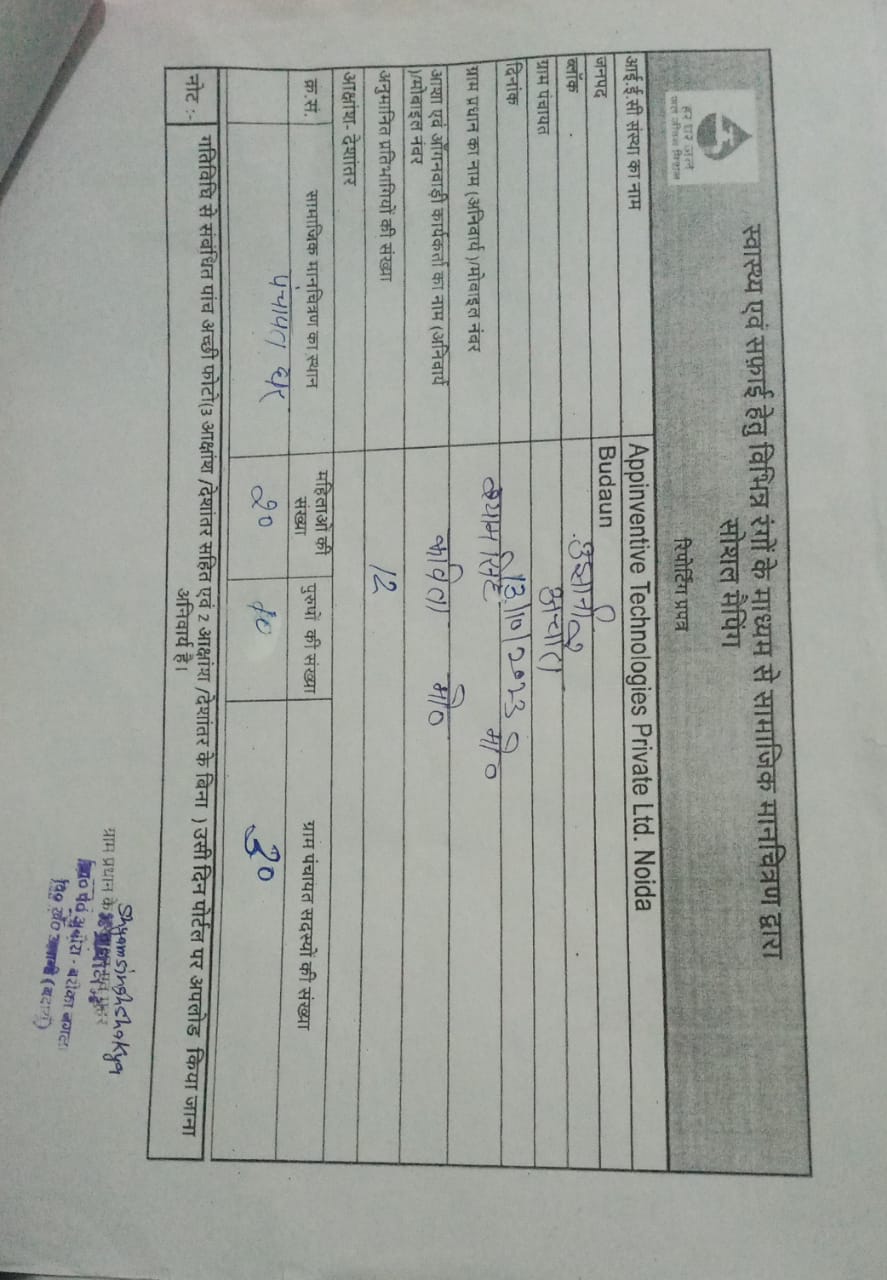 हर घर जल
जल जीवन मिशन
स्वास्थ्य एवं सफ़ाई हेतु विभिन्न रंगों के माध्यम से सामाजिक मानचित्रण द्वारा
सोशल मैपिंग
रिपोर्टिंग प्रपत्र
आई.ई.सी संस्था का नाम Appinventive Technologies Private Ltd. Noida
जनपद Budaun
ब्लॉक
ग्राम पंचायत
दिनांक 13/10/2023
ग्राम प्रधान का नाम (अनिवार्य )/मोबाइल नंबर श्याम सिंह मो०
आशा एवं आँगनवाड़ी कार्यकर्ता का नाम (अनिवार्य कविता मो०
)/मोबाइल नंबर
अनुमानित प्रतिभागियों की संख्या 12
आक्षांश- देशांतर
क्र.सं. सामाजिक मानचित्रण का स्थान महिलाओं की संख्या पुरुषों की संख्या ग्राम पंचायत सदस्यों की संख्या
पंचायत घर 20 10 30
नोट :- गतिविधि से संबंधित पांच अच्छी फोटो(3 आक्षांश /देशांतर सहित एवं 2 आक्षांश /देशांतर के बिना ) उसी दिन पोर्टल पर अपलोड किया जाना
अनिवार्य है।
Shyam singh Shakya
ग्राम प्रधान के